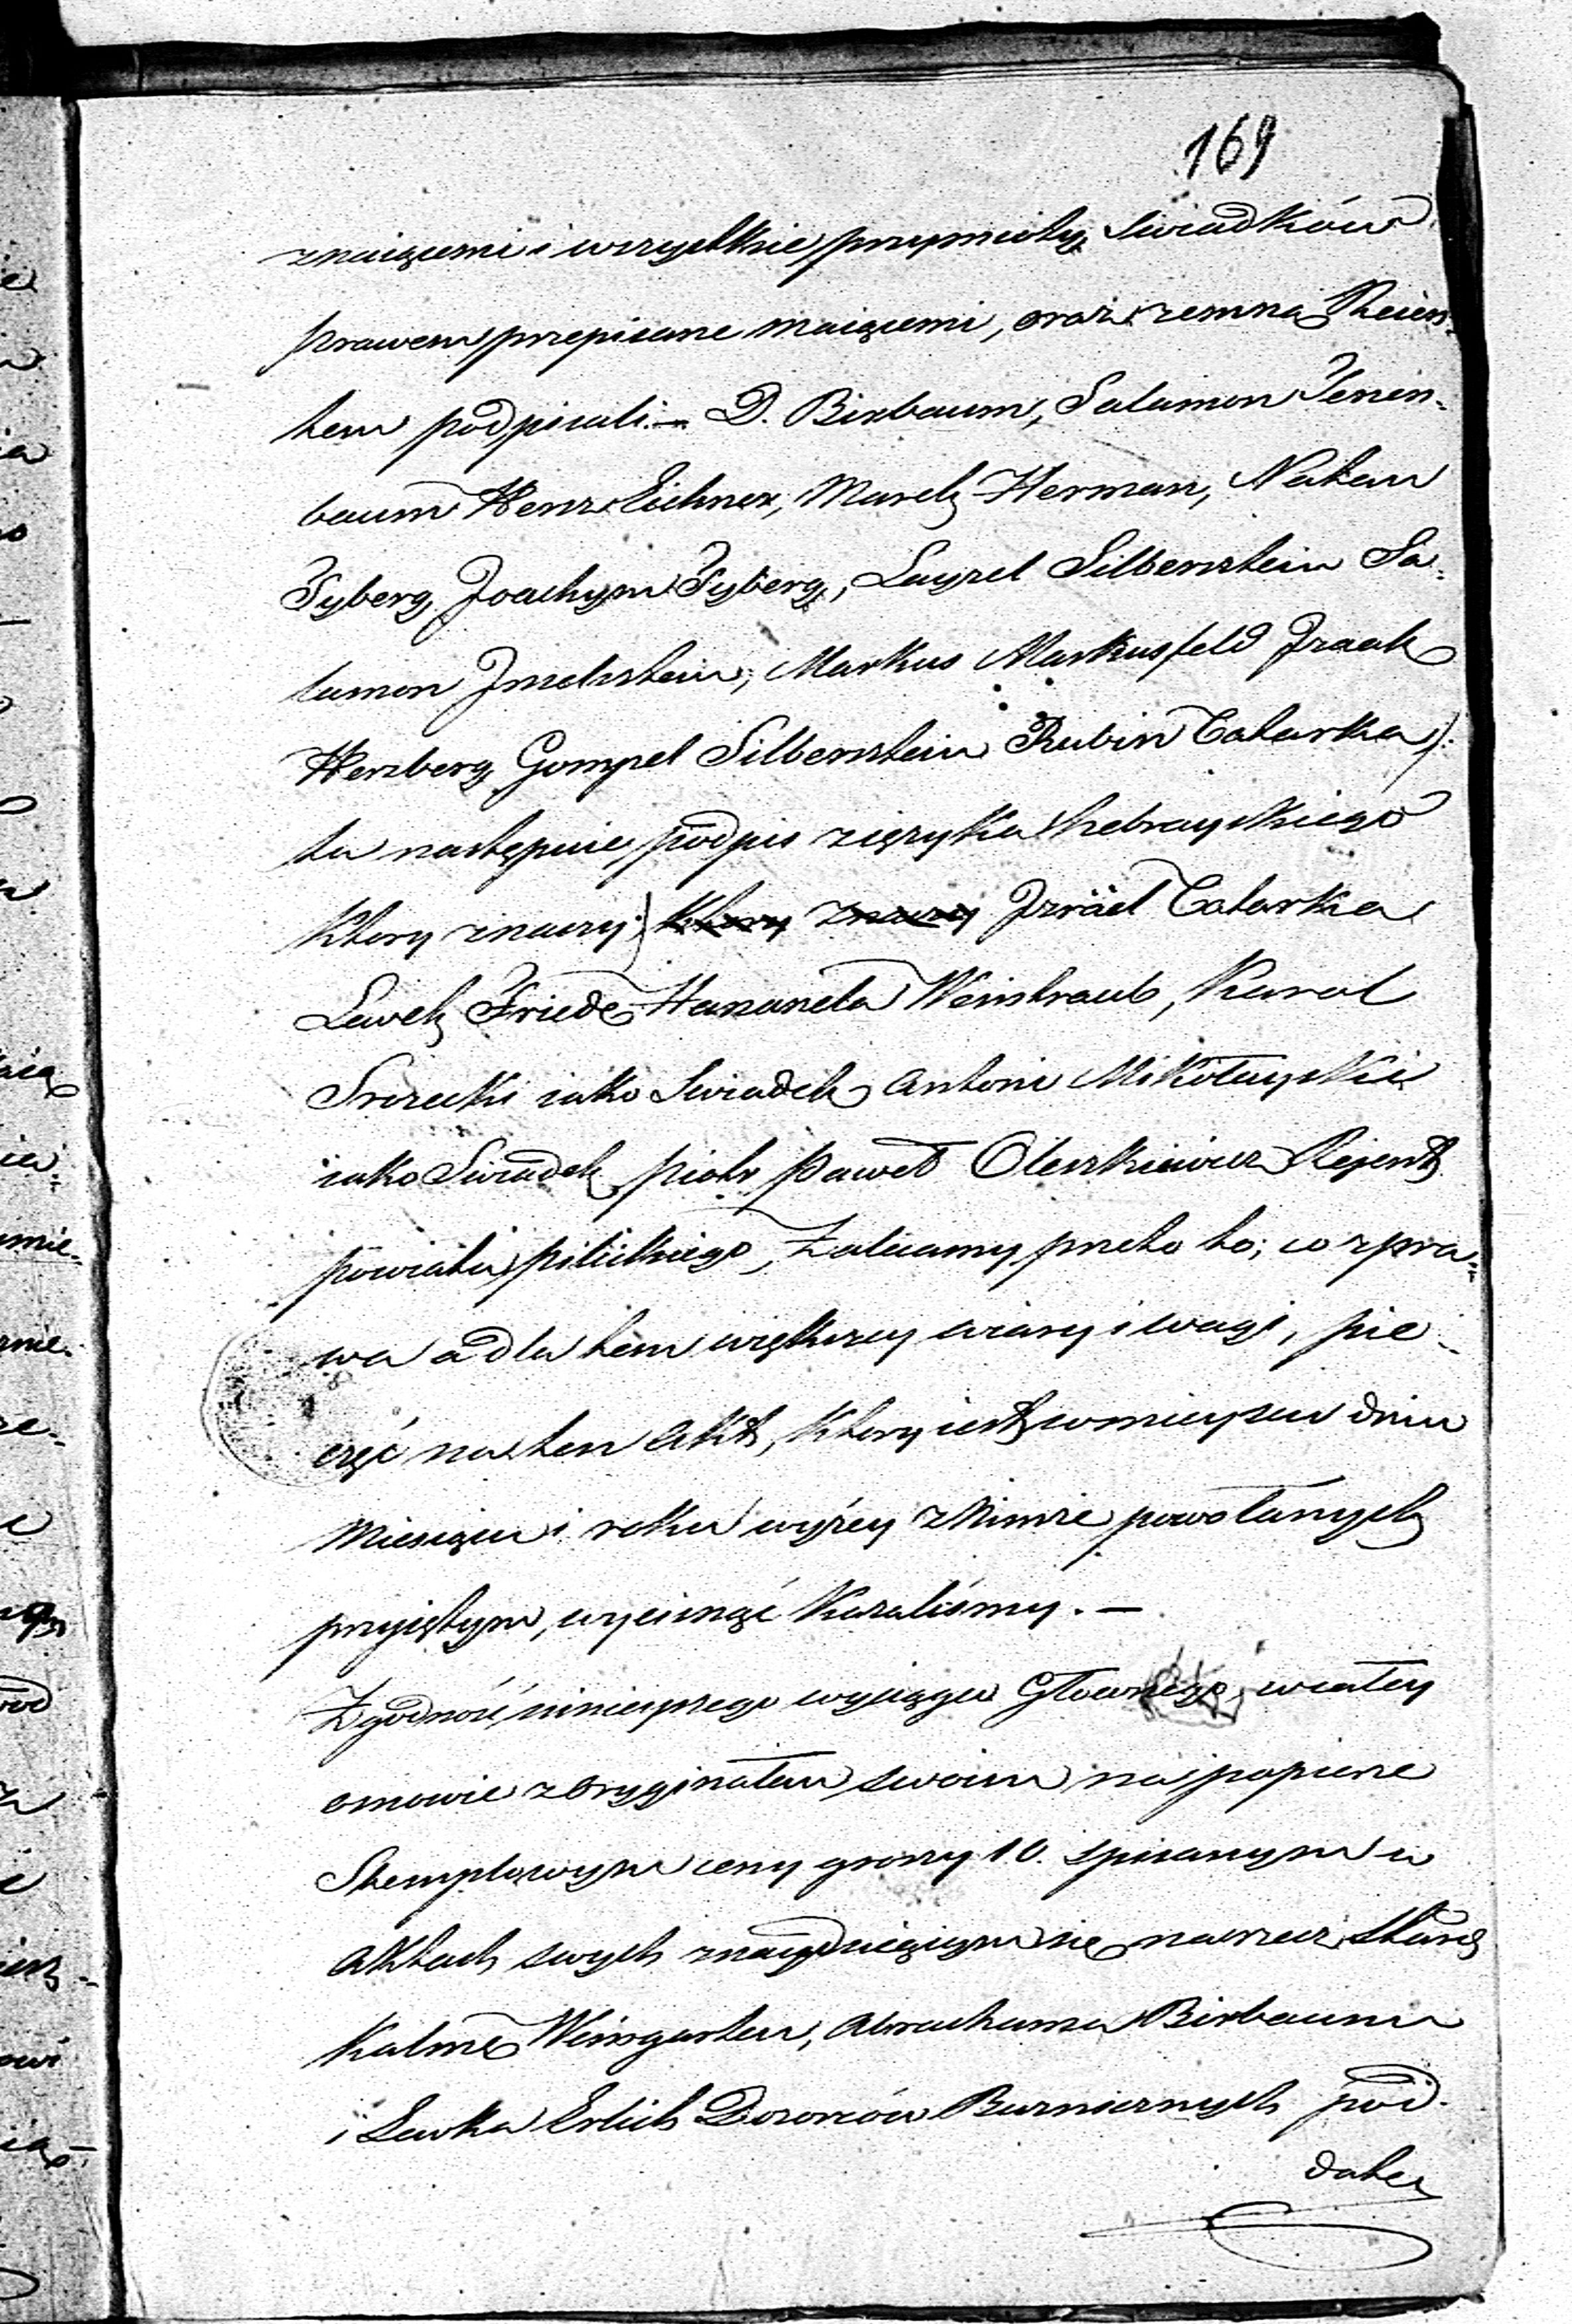 169
znaiącemi i wszystkie przymioty Swiadków
prawem przepisane maiącemi, oraz zemną Reien-
tem podpisali.— D. Birbaum, Salamon Tenen-
baum Herz Eichner, Marek Herman, Natan
Fyberg Joachym Fyberg, Layzel Silberstein Sa-
lamon Markus Markusfeld Izaak
Herzberg Gompel Silberstein Rubin Catarka /:
tu następuie podpis zięzyka hebrayskiego
ktory znaczy :/ ktory znaczy Izräel Catarka
Lewek Friede Hananela Weinstraub, Karol
jako Swiadek Antoni Mikołayski
jako Swiadek Piotr Paweł Oleszkiewicz Rejent
powiatu pilickiego, Zalecamy przeto to; co z pra-
wa a dla tem większey wiary i wagi, pie-
częć na ten Akt, ktory iest w mieyscu dniu
Miesiącu i roku wyżey z Nimże powołanych
przyiętym, wycisnąć kazaliśmy.—
Zgodność ninieyszego wyciągu Głownego, w całey
osnowie z Oryginałem swoim na papierze
Stemplowym ceny groszy 10. spisanym w
Aktach swych znayduiącym się na rzecz Star:
Kalmę Weingarten, Abrahama Birbaum
i Lewka Erlich Dozorców Bużnicznych pod-
datey